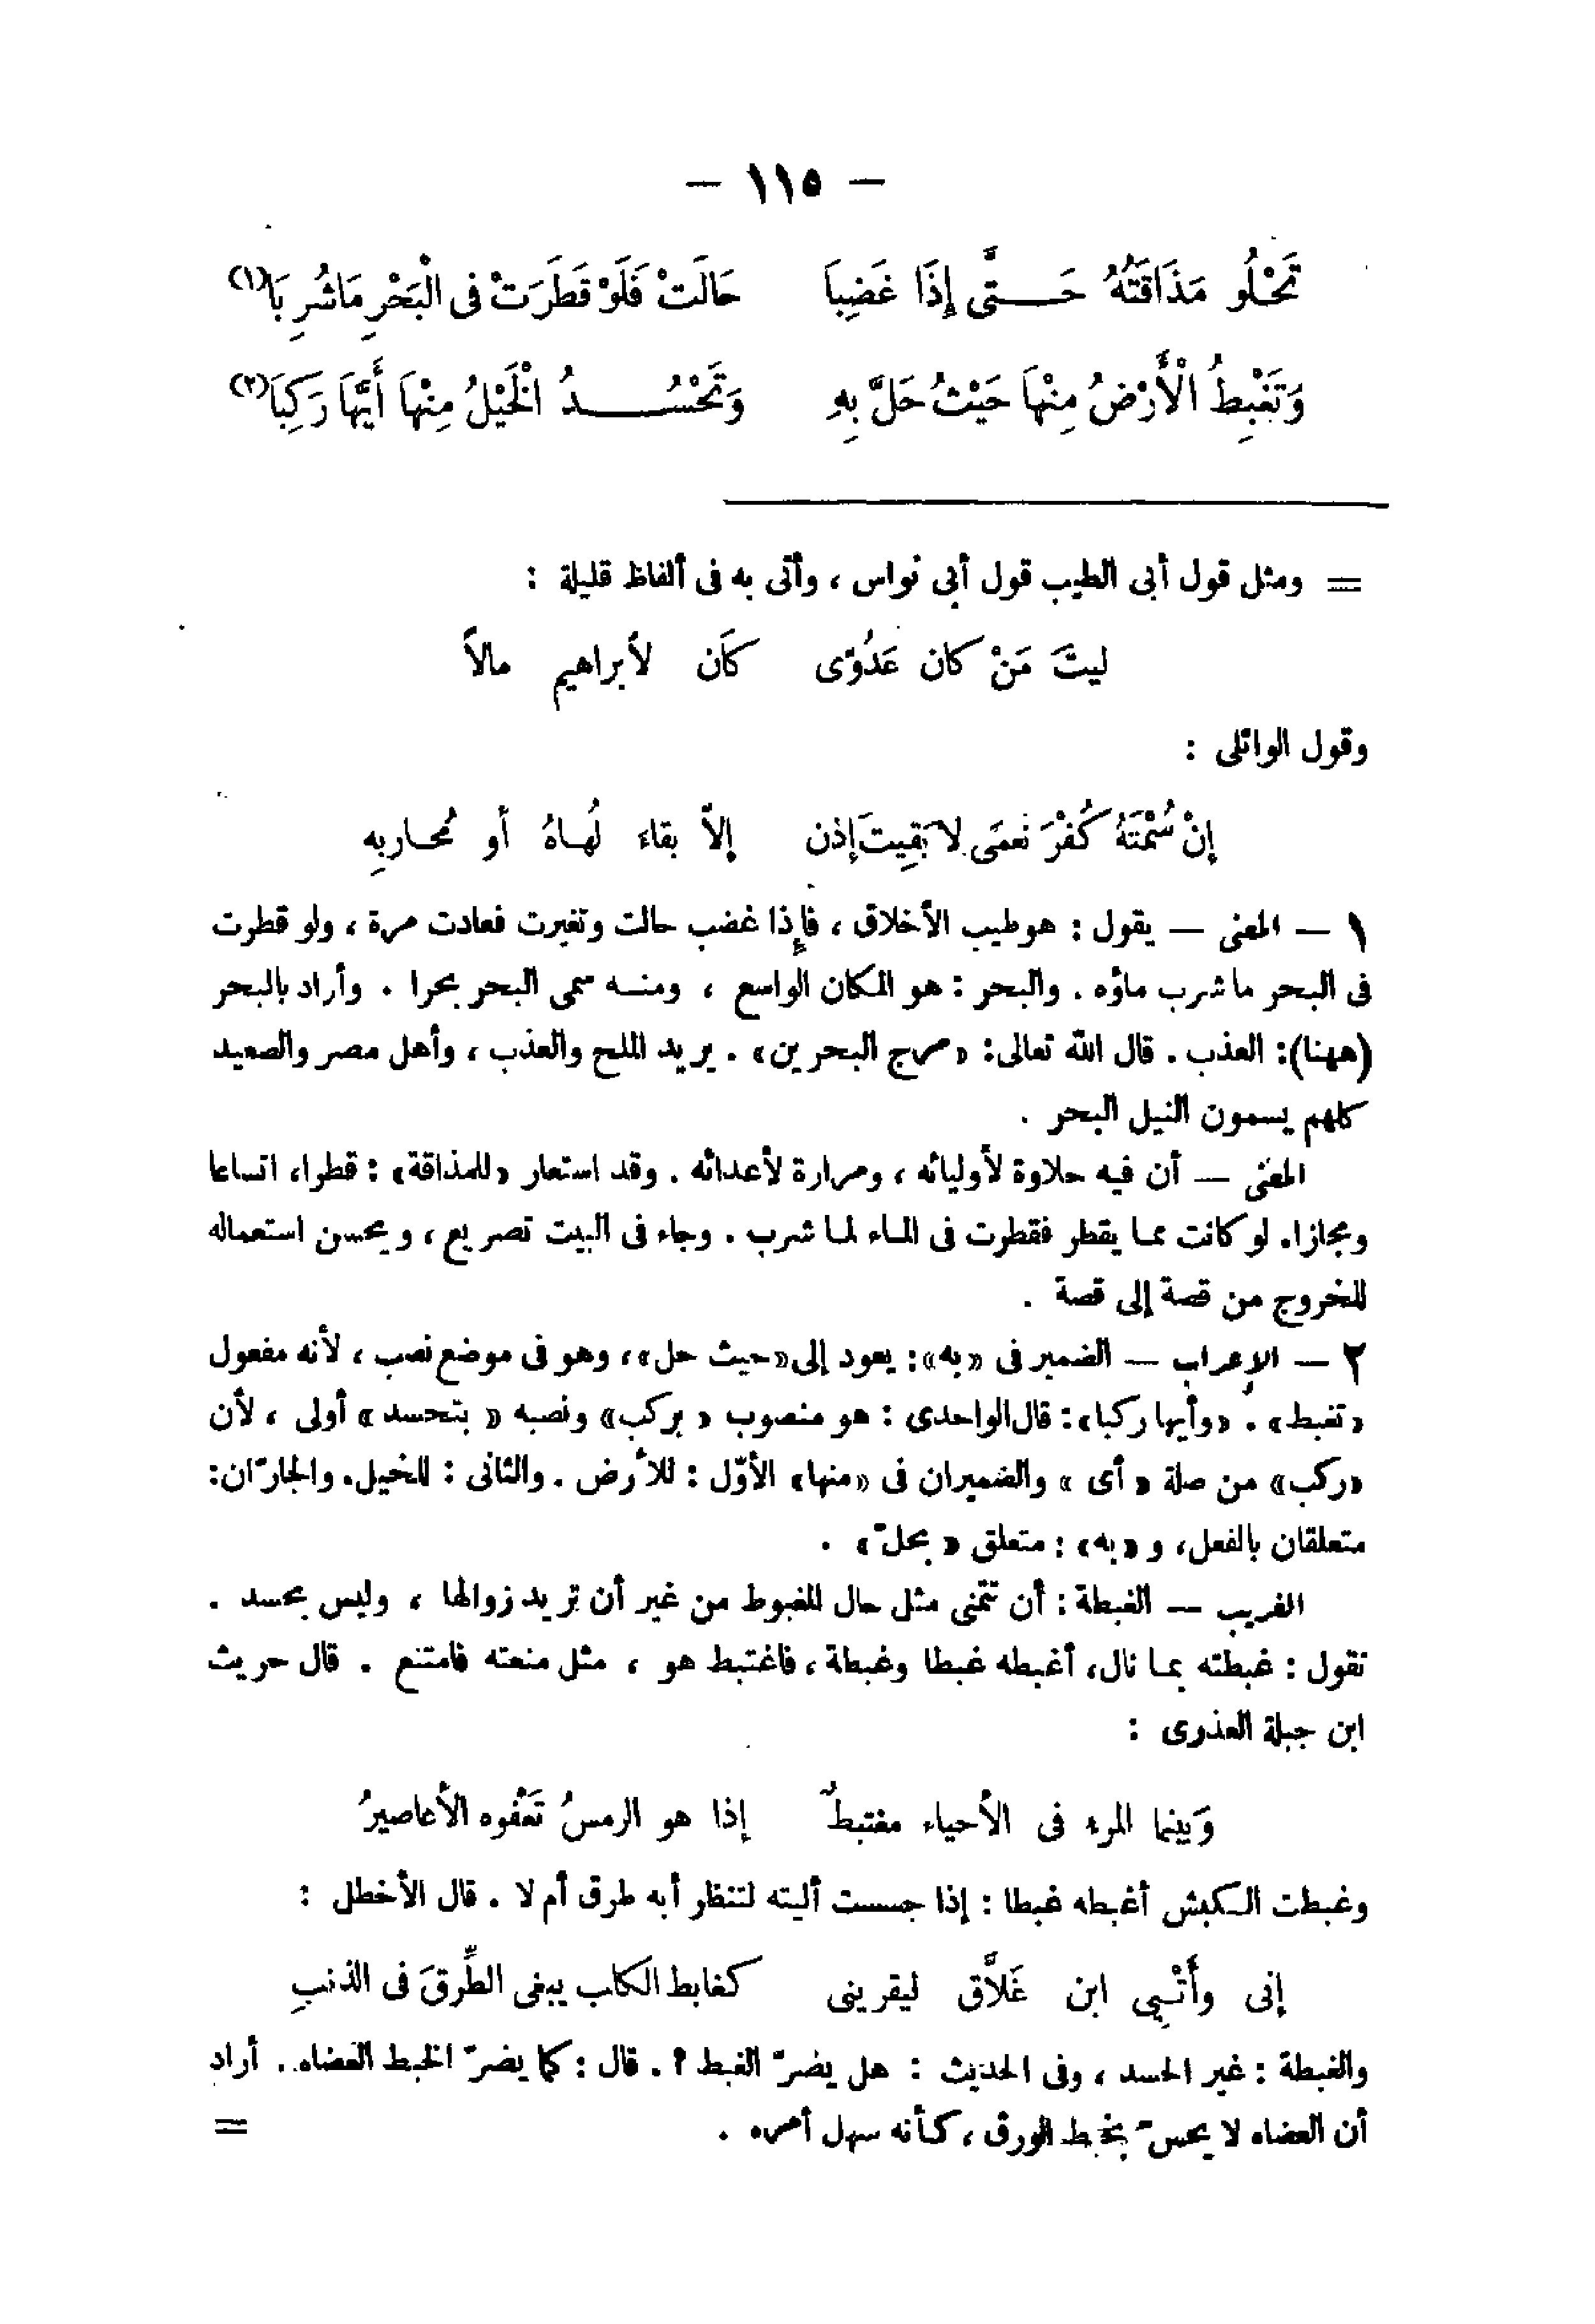 — ١١٥ —
تَحْلُو مَذَاقَتُهُ حَـتَّى إِذَا غَضِبَا حَالَتْ فَلَوْ قَطَرَتْ فى الْبَحْرِ مَاشُرِبَا(١)
وَتَغْبِطُ الْأَرْضُ مِنْهَا حَيْثُ حَلَّ بِهِ وَتَحْسُـدُ الْخَيْلُ مِنْهَا أَيَّهَا رَكِبَا(٢)
= ومثل قول أبى الطيب قول أبى نواس ، وأتى به فى ألفاظ قليلة :
ليتَ مَنْ كان عَدُوّى كَان لأبراهيم مالاً
وقول الوائلى :
إنْ سُمْتَهُ كُفْرَ نُعمَى لا بَقِيتَ إذن إلاّ بقاءَ لُهـاهُ أو مُحـاربِهِ
١ — المعنى — يقول : هو طيب الأخلاق ، فإذا غضب حالت وتغيرت فعادت مرة ، ولو قطرت
فى البحر ما شرب ماؤه . والبحر : هو المكان الواسع ، ومنـه سمى البحر بحرا . وأراد بالبحر
(ههنا): العذب . قال الله تعالى: «مرج البحرين» . يريد الملح والعذب ، وأهل مصر والصعيد
كلهم يسمون النيل البحر .
المعنى — أن فيه حلاوة لأوليائه ، ومرارة لأعدائه . وقد استعار «للمذاقة» : قطرا، اتساعا
ومجازا. لو كانت مما يقطر فقطرت فى الماء لما شرب . وجاء فى البيت تصريع ، ويحسن استعماله
للخروج من قصة إلى قصة .
٢ — الإعراب — الضمير فى «به»: يعود إلى «حيث حل» ، وهو فى موضع نصب ، لأنه مفعول
«تغبط» . «وأيها ركبا»: قال الواحدى : هو منصوب « بركب» ونصبه « بتحسد » أولى ، لأن
«ركب» من صلة « أى » والضميران فى «منها» الأوّل : للأرض . والثانى : للخيل. والجارّان:
متعلقان بالفعل، و «به» : متعلق « بحلّ» .
الغريب — الغبطة : أن تتمنى مثل حال المغبوط من غير أن تريد زوالها ، وليس بحسد .
تقول : غبطته بما نال، أغبطه غبطا وغبطة ، فاغتبط هو ، مثل منعته فامتنع . قال حريث
ابن جبلة العذرى :
وَبينما المرء فى الأحياء مغتبطٌ إذا هو الرمسُ تَعْفوه الأعاصيرُ
وغبطت الكبش أغبطه غبطا : إذا جسست أليته لتنظر أبه طرق أم لا . قال الأخطل :
إنى وأَتْـيِي ابن غَلاَّق ليقرينى كغابط الكلب يبغى الطِّرقَ فى الذنبِ
والغبطة : غير الحسد ، وفى الحديث : هل يضرّ الغبط ؟ . قال : كما يضرّ الخبط العضاه . أراد
أن العضاه لا يحسّ بخبط الورق ، كأنه سهل أمره . =